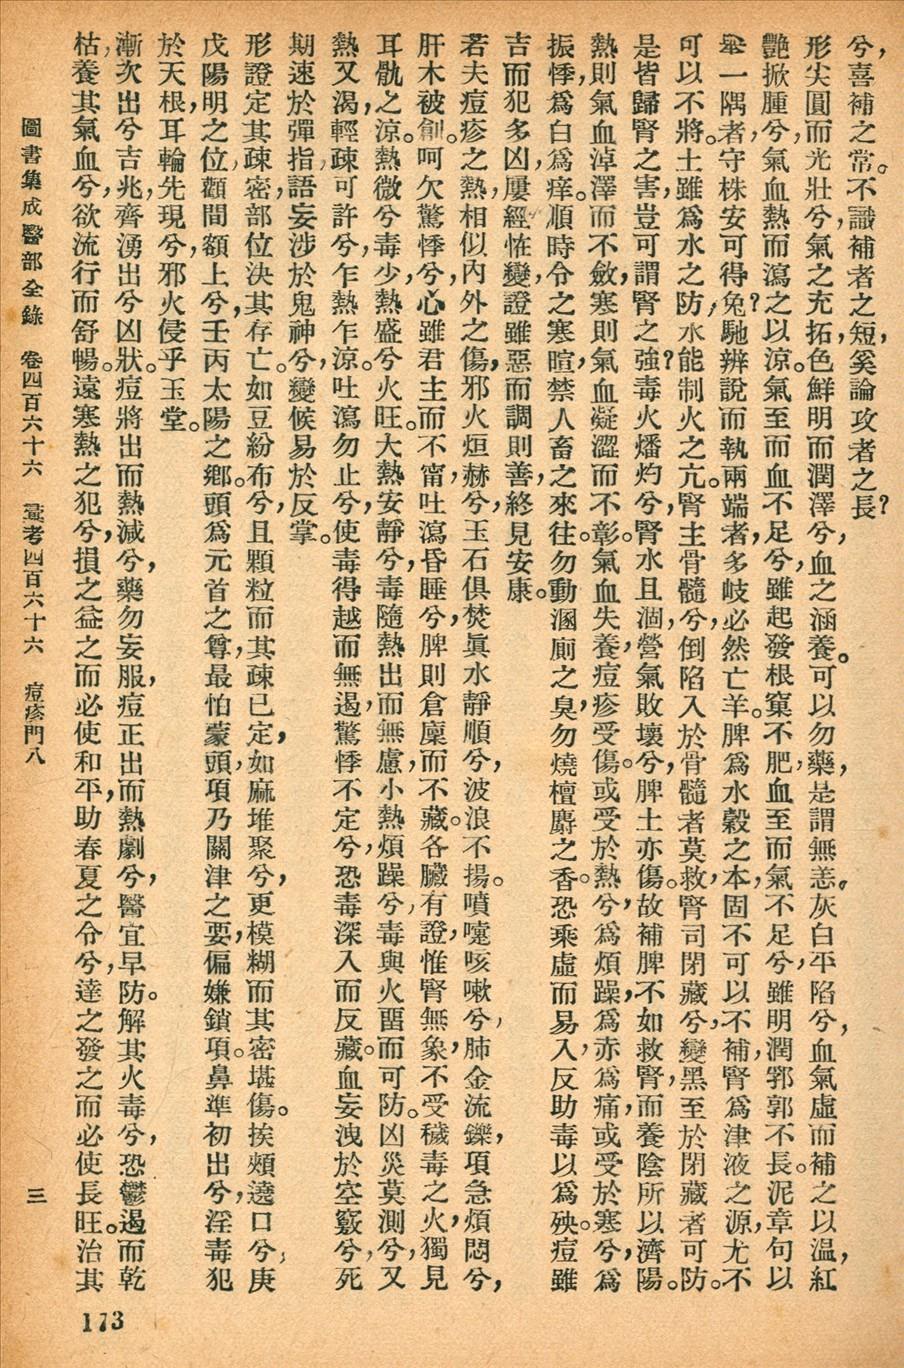 兮，喜補之常。不識補者之短，奚論攻者之長？
形尖圓而光壯兮，氣之充拓，色鮮明而潤澤兮，血之涵養。可以勿藥，是謂無恙。灰白平陷兮，血氣虛而補之以溫，紅
艷掀腫兮，氣血熱而瀉之以涼。氣至而血不足兮，雖起發根窠不肥，血至而氣不足兮，雖明潤郛郭不長。泥章句以
舉一隅者，守株安可得兔？馳辨說而執兩端者，多岐必然亡羊。脾爲水穀之本，固不可以不補，腎爲津液之源，尤不
可以不將。土雖爲水之防，水能制火之亢。腎主骨髓兮，倒陷入於骨髓者莫救，腎司閉藏兮，變黑至於閉藏者可防。
是皆歸腎之害，豈可謂腎之強？毒火燔灼兮，腎水且涸，營氣敗壞兮，脾土亦傷。故補脾不如救腎，而養陰所以濟陽。
熱則氣血淖澤而不斂，寒則氣血凝澀而不彰。氣血失養，痘疹受傷。或受於熱兮，爲煩躁，爲赤爲痛，或受於寒兮，爲
振悸，爲白爲痒。順時令之寒暄，禁人畜之來往。勿動溷廁之臭，勿燒檀麝之香。恐乘虛而易入，反助毒以爲殃。痘雖
吉而犯多凶，屢經怪變，證雖惡而調則善，終見安康。
若夫痘疹之熱，相似內外之傷，邪火烜赫兮，玉石俱焚，眞水靜順兮，波浪不揚。噴嚏咳嗽兮，肺金流鑠，項急煩悶兮，
肝木被創。呵欠驚悸兮，心雖君主而不甯，吐瀉昏睡兮，脾則倉廩而不藏。各臟有證，惟腎無象，不受穢毒之火，獨見
耳骩之涼。熱微兮毒少，熱盛兮火旺。大熱安靜兮，毒隨熱出而無慮，小熱煩躁兮，毒與火畱而可防。凶災莫測兮，又
熱又渴，輕疎可許兮，乍熱乍涼。吐瀉勿止兮，使毒得越而無遏，驚悸不定兮，恐毒深入而反藏。血妄洩於空竅兮，死
期速於彈指，語妄涉於鬼神兮，變候易於反掌。
形證定其疎密，部位決其存亡。如豆紛布兮，且顆粒而其疎已定，如麻堆聚兮，更模糊而其密堪傷。挨頰遶口兮，庚
戊陽明之位，顴間額上兮，壬丙太陽之鄉。頭爲元首之尊，最怕蒙頭，項乃關津之要，偏嫌鎖項。鼻準初出兮，淫毒犯
於天根，耳輪先現兮，邪火侵乎玉堂。
漸次出兮吉兆，齊湧出兮凶狀。痘將出而熱減兮，藥勿妄服，痘正出而熱劇兮，醫宜早防。解其火毒兮，恐鬱遏而乾
枯，養其氣血兮，欲流行而舒暢。遠寒熱之犯兮，損之益之而必使和平，助春夏之令兮，達之發之而必使長旺。治其
圖書集成醫部全錄　卷四百六十六　彙考四百六十六　痘疹門八　三
173